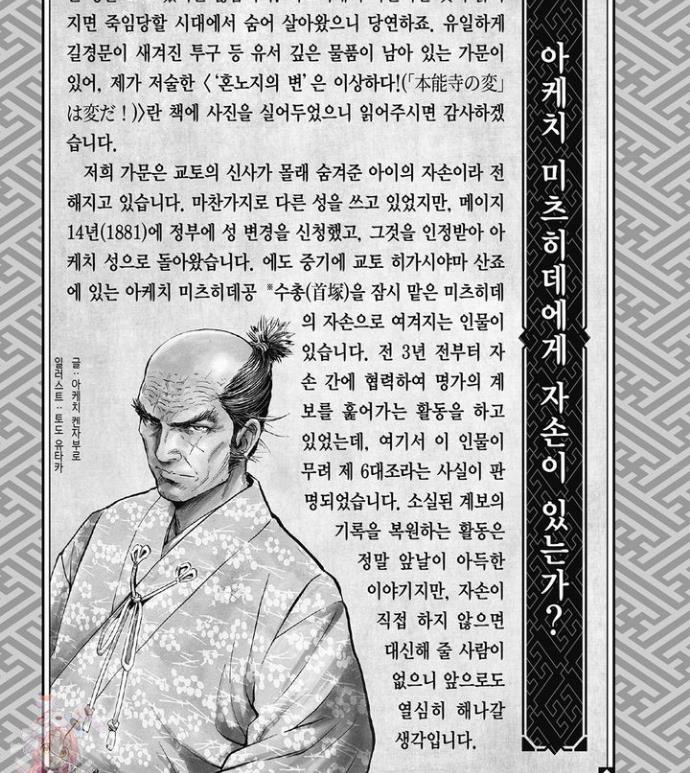 아케치 미츠히데에게 자손이 있는가?
지면 죽임당할 시대에서 숨어 살아왔으니 당연하죠. 유일하게
길경문이 새겨진 투구 등 유서 깊은 물품이 남아 있는 가문이
있어, 제가 저술한 〈'혼노지의 변'은 이상하다!(「本能寺の変」
は変だ！)〉란 책에 사진을 실어두었으니 읽어주시면 감사하겠
습니다.
저희 가문은 교토의 신사가 몰래 숨겨준 아이의 자손이라 전
해지고 있습니다. 마찬가지로 다른 성을 쓰고 있었지만, 메이지
14년(1881)에 정부에 성 변경을 신청했고, 그것을 인정받아 아
케치 성으로 돌아왔습니다. 에도 중기에 교토 히가시야마 산죠
에 있는 아케치 미츠히데공 ※수총(首塚)을 잠시 맡은 미츠히데
의 자손으로 여겨지는 인물이
있습니다. 전 3년 전부터 자
손 간에 협력하여 명가의 계
보를 훑어가는 활동을 하고
있었는데, 여기서 이 인물이
무려 제 6대조라는 사실이 판
명되었습니다. 소실된 계보의
기록을 복원하는 활동은
정말 앞날이 아득한
이야기지만, 자손이
직접 하지 않으면
대신해 줄 사람이
없으니 앞으로도
열심히 해나갈
생각입니다.
글:아케치 켄자부로
일러스트:토도 유타카